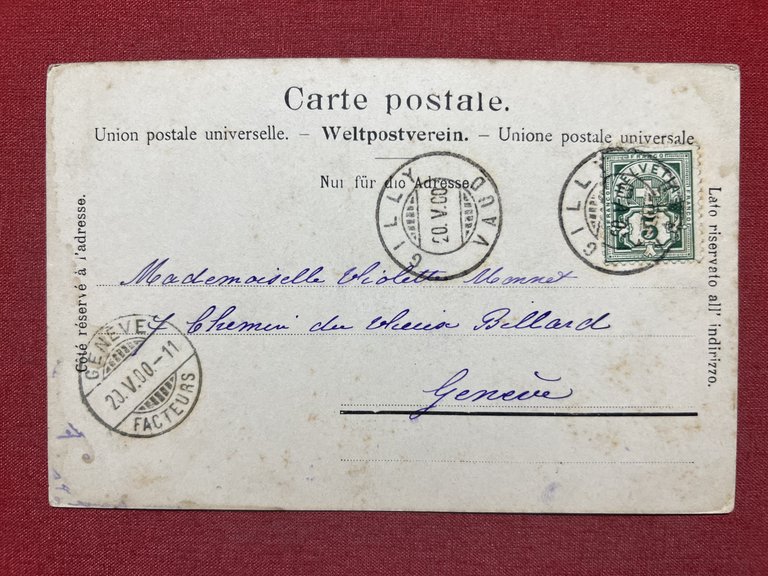 Carte postale.
Union postale universelle. – Weltpostverein. – Unione postale universale
Nur für die Adresse.
GILLY VAUD
20.V.00
GILLY
HELVETIA
FRANCO
5
Mademoiselle Violette Monnet
7 Chemin du Vieux Billard
Genève
Côté réservé à l'adresse.
Lato riservato all' indirizzo.
GENÈVE
20.V.00-11
FACTEURS